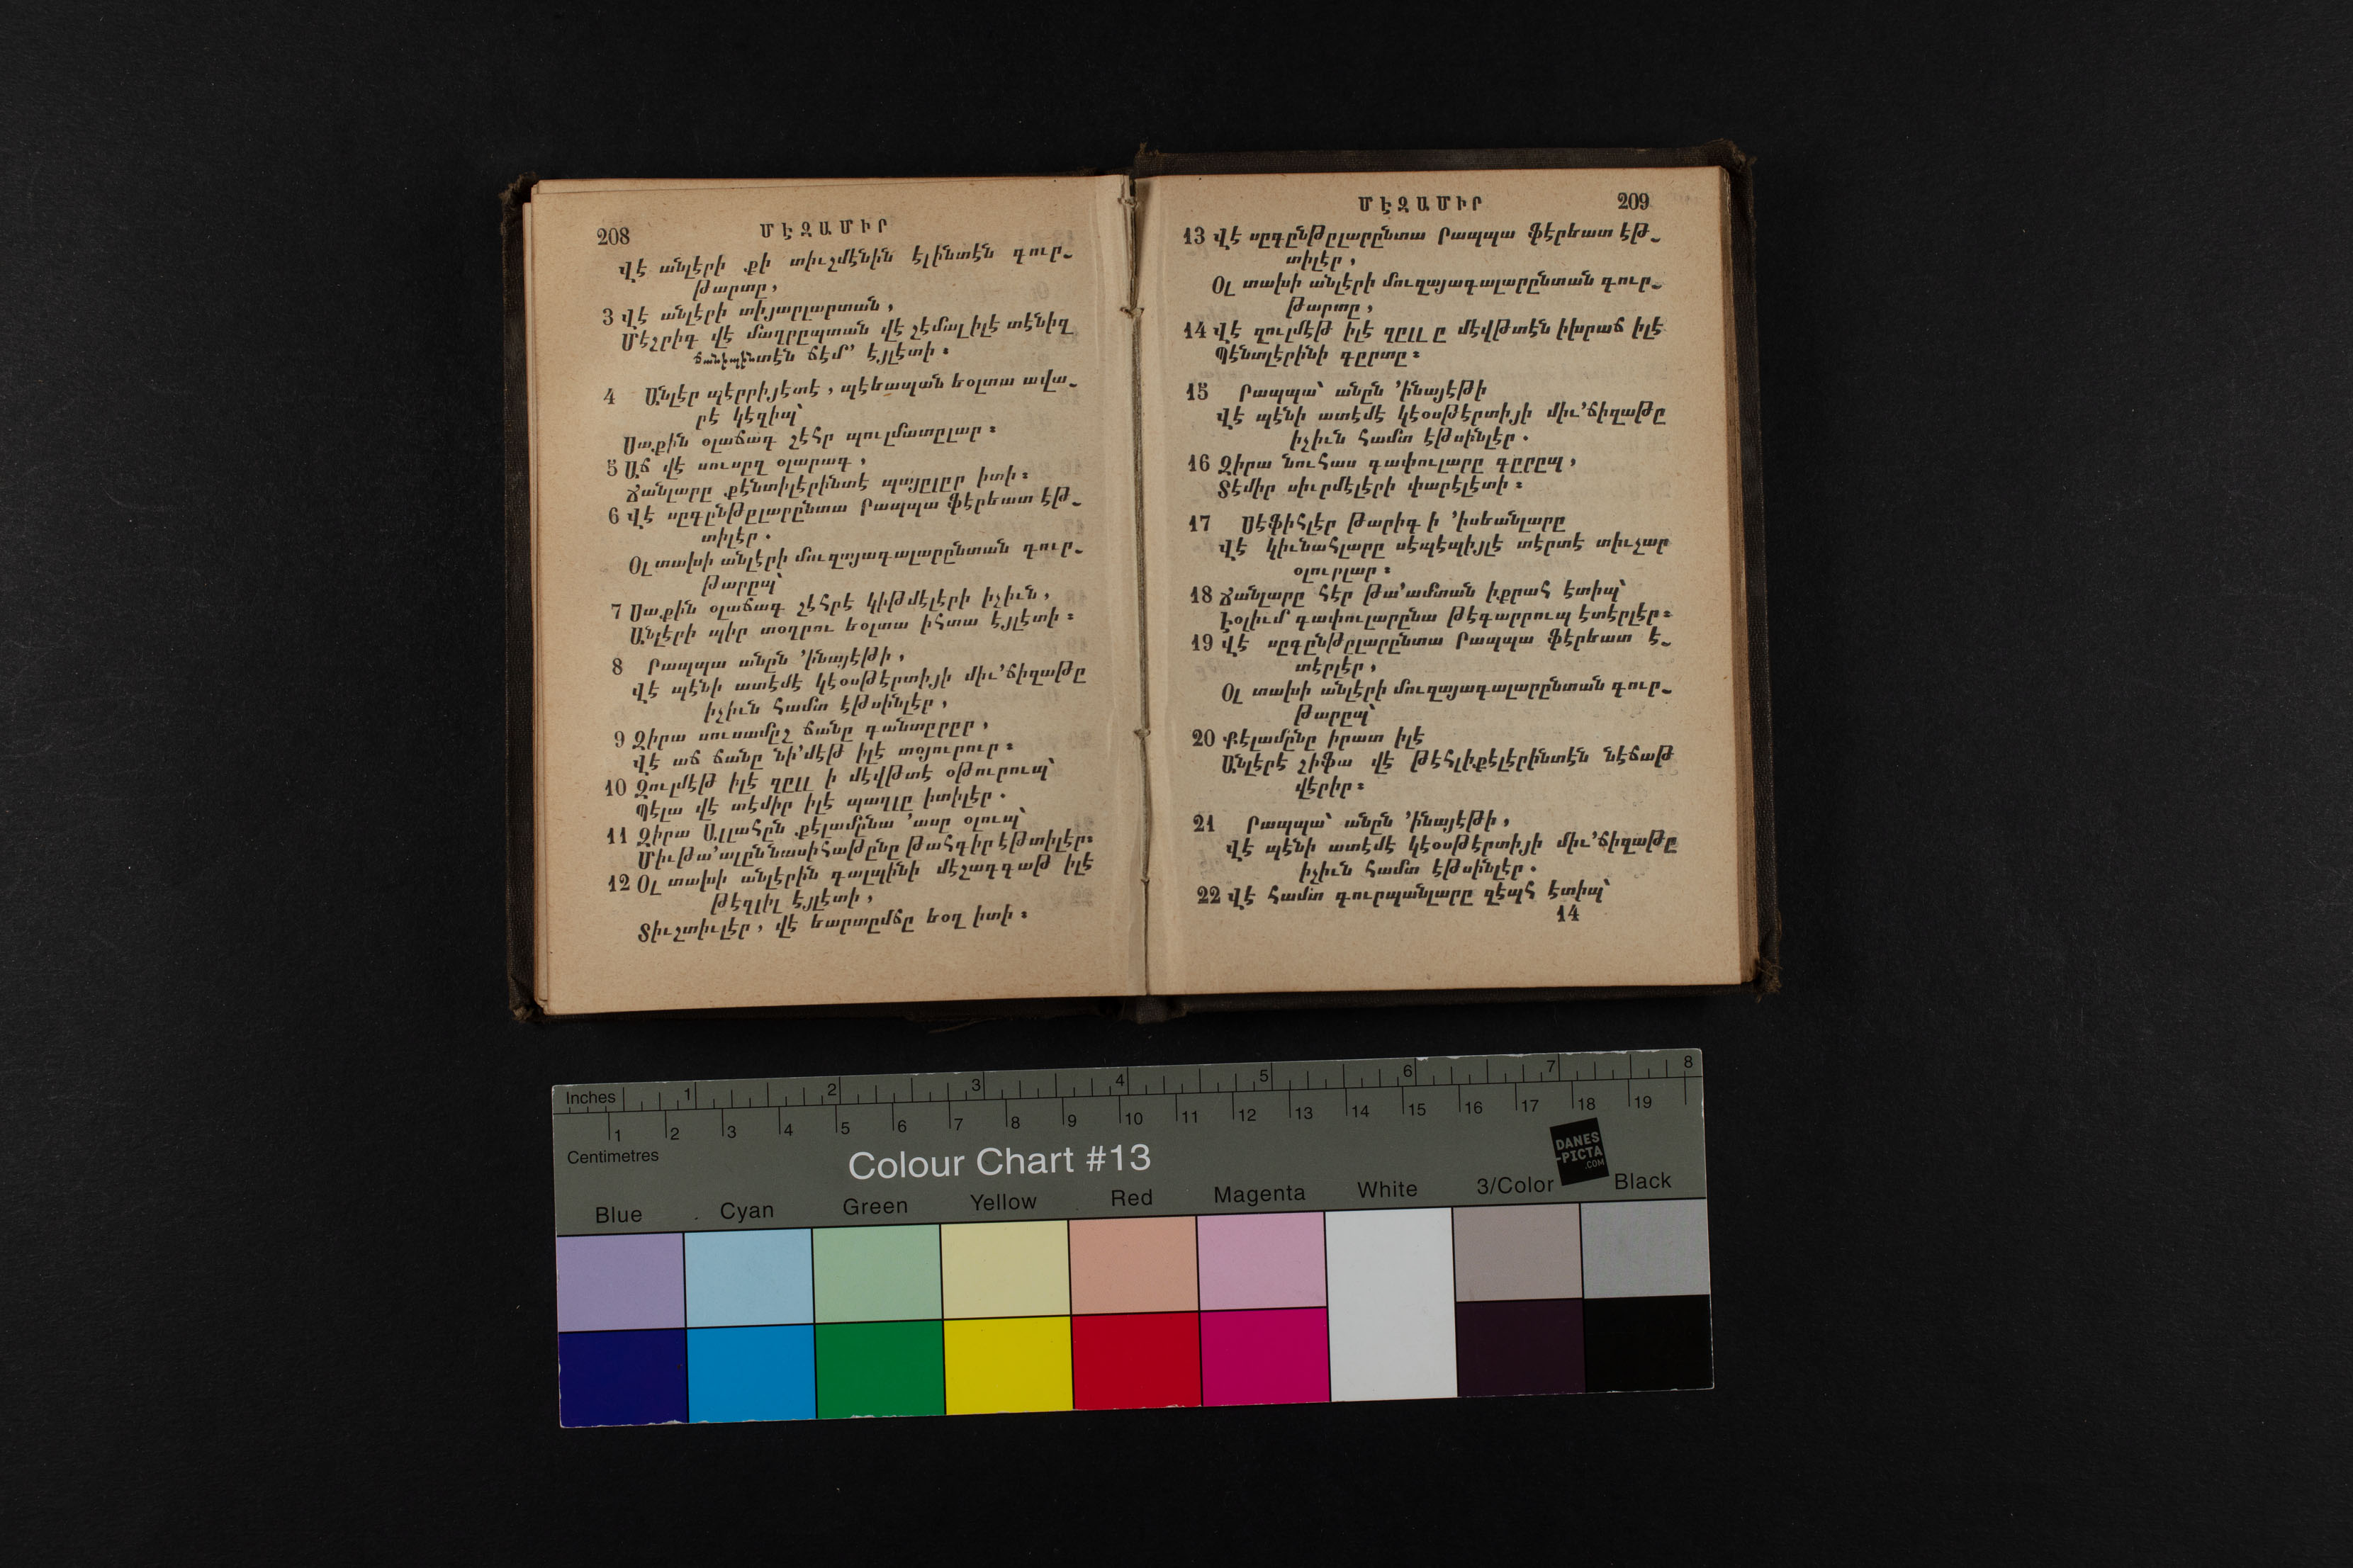 208
ՄԷԶԱՄԻՐ
Վէ անլէրի քի տիւշմէնին էլինտէն գուր֊
թարտը,
3 Վէ անլէրի տիյարլարտան,
Մէշրիգ վէ մաղրըպտան վէ շէմալ իլէ տէնիզ
ճանիպինտէն ճէմ՚ էյլէտի։
4 Անլէր պէրրիյէտէ, պէեապան եօլտա ավա֊
րէ կէզիպ՝
Սաքին օլաճագ շէհր պուլմատըլար։
5 Աճ վէ սուսըզ օլարագ,
Ճանլարը քէնտիլէրինտէ պայըլըր իտի։
6 Վէ սըգընթըլարընտա Րապպա ֆէրեատ էթ֊
տիլէր.
Օլ տախի անլէրի մուզայագալարընտան գուր֊
թարըպ՝
7 Սաքին օլաճագ շէհրէ կիթմէլէրի իչիւն,
Անլէրի պիր տօղրու եօլտա իհտա էյլէտի։
8 Րապպա անըն ՚ինայէթի,
Վէ պէնի ատէմէ կէօսթէրտիյի միւ՚ճիզաթը
իչիւն համտ էթսինլէր,
9 Զիրա սուսամըշ ճանը գանտըրըր,
Վէ աճ ճանը նի՚մէթ իլէ տօյուրուր։
10 Զուլմէթ իլէ զըլլ ի մէվթտէ օթուրուպ՝
Պէլա վէ տէմիր իլէ պաղլը իտիլէր.
11 Զիրա Ալլահըն քէլամընա ՚ասը օլուպ՝
Միւթա՚ալըն նասիհաթընը թահգիր էթտիլէր։
12 Օլ տախի անլէրին գալպինի մէշագգաթ իլէ
թէզլիլ էյլէտի,
Տիւշտիւլէր, վէ եարտըմճը եօղ իտի։
ՄԷԶԱՄԻՐ
209
13 Վէ սըգընթըլարընտա Րապպա ֆէրեատ էթ֊
տիլէր,
Օլ տախի անլէրի մուզայագալարընտան գուր֊
թարտը,
14 Վէ զուլմէթ իլէ զըլլ ը մէվթտէն իխրաճ իլէ
Պէնտլէրինի գըրտը։
15 Րապպա՝ անըն ՚ինայէթի
Վէ պէնի ատէմէ կէօսթէրտիյի միւ՚ճիզաթը
իչիւն համտ էթսինլէր.
16 Զիրա նուհաս գափուլարը գըրըպ,
Տէմիր սիւրմէլէրի փարէլէտի։
17 Սէֆիհլէր թարիգ ի ՚իսեանլարը
Վէ կիւնահլարը սէպէպիյլէ տէրտէ տիւչար
օլուրլար։
18 Ճանլարը հէր թա՚ամտան իքրահ էտիպ՝
Էօլիւմ գափուլարընա թէգարրուպ էտէրլէր։
19 Վէ սըգընթըլարընտա Րապպա ֆէրեատ է֊
տէրլէր,
Օլ տախի անլէրի մուզայագալարընտան գուր֊
թարըպ՝
20 Քէլամընը իրատ իլէ
Անլէրէ շիֆա վէ թէհլիքէլէրինտէն նէճաթ
վէրիր։
21 Րապպա՝ անըն ՚ինայէթի,
Վէ պէնի ատէմէ կէօսթէրտիյի միւ՚ճիզաթը
իչիւն համտ էթսինլէր.
22 Վէ համտ գուրպանլարը զէպհ էտիպ՝
14
Inches 1 2 3 4 5 6 7 8
1 2 3 4 5 6 7 8 9 10 11 12 13 14 15 16 17 18 19
Centimetres
Colour Chart #13
DANES
-PICTA
.COM
Blue Cyan Green Yellow Red Magenta White 3/Color Black